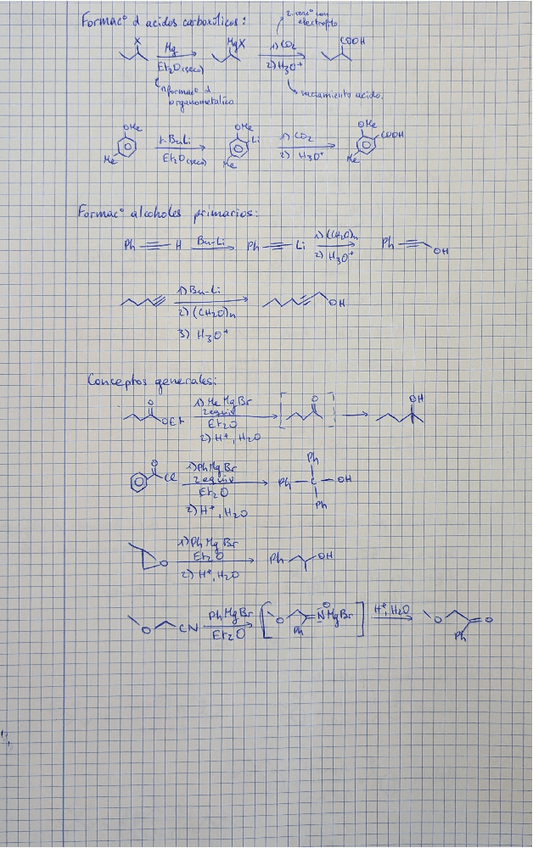 Formac° d acidos carboxílicos:
2. reac° con electrofilo
X Mg Et2O (seco) MgX 1) CO2 2) H3O+ COOH
formac° d organometalico
tratamiento acido.
OMe Me t-BuLi Et2O (seco) OMe Li Me 1) CO2 2) H3O+ OMe COOH Me
Formac° alcoholes primarios:
Ph H Bu-Li Ph Li 1) (CH2O)n 2) H3O+ Ph OH
1) Bu-Li 2) (CH2O)n 3) H3O+ OH
Conceptos generales:
O OEt 1) MeMgBr 2 equiv Et2O 2) H+, H2O O OH
O Cl 1) PhMgBr 2 equiv Et2O 2) H+, H2O Ph Ph C OH Ph
O 1) PhMgBr Et2O 2) H+, H2O Ph OH
O CN PhMgBr Et2O [ O Ph N MgBr ] H+, H2O O Ph O